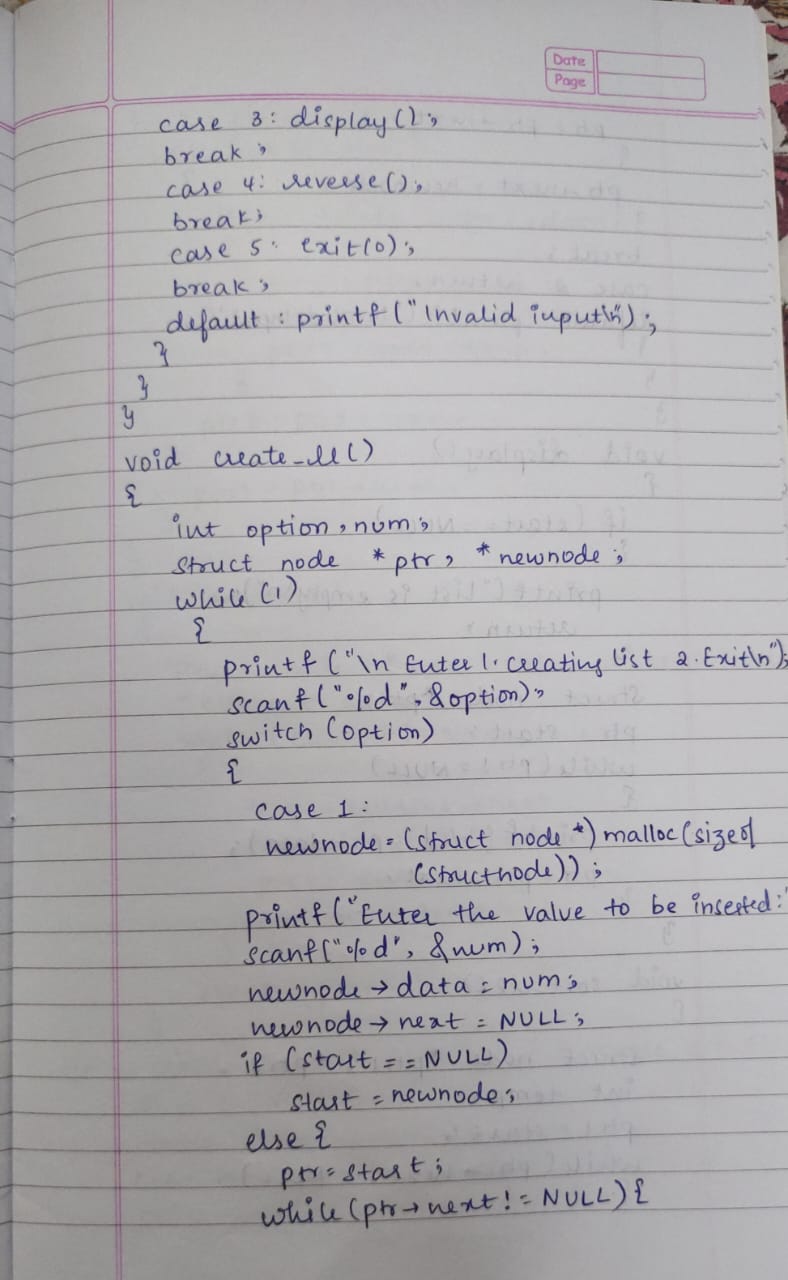 Date
Page
case 3: display();
break;
case 4: reverse();
break;
case 5: exit(0);
break;
default: printf("Invalid input\n");
}
}
}
void create_ll()
{
int option, num;
struct node *ptr, *newnode;
while(1)
{
printf("\n Enter 1. creating list 2. Exit\n");
scanf("%d", &option);
switch (option)
{
case 1:
newnode = (struct node *) malloc(sizeof
(struct node));
printf("Enter the value to be inserted:"
scanf("%d", &num);
newnode → data = num;
newnode → next = NULL;
if (start == NULL)
start = newnode;
else {
ptr = start;
while(ptr → next != NULL) {